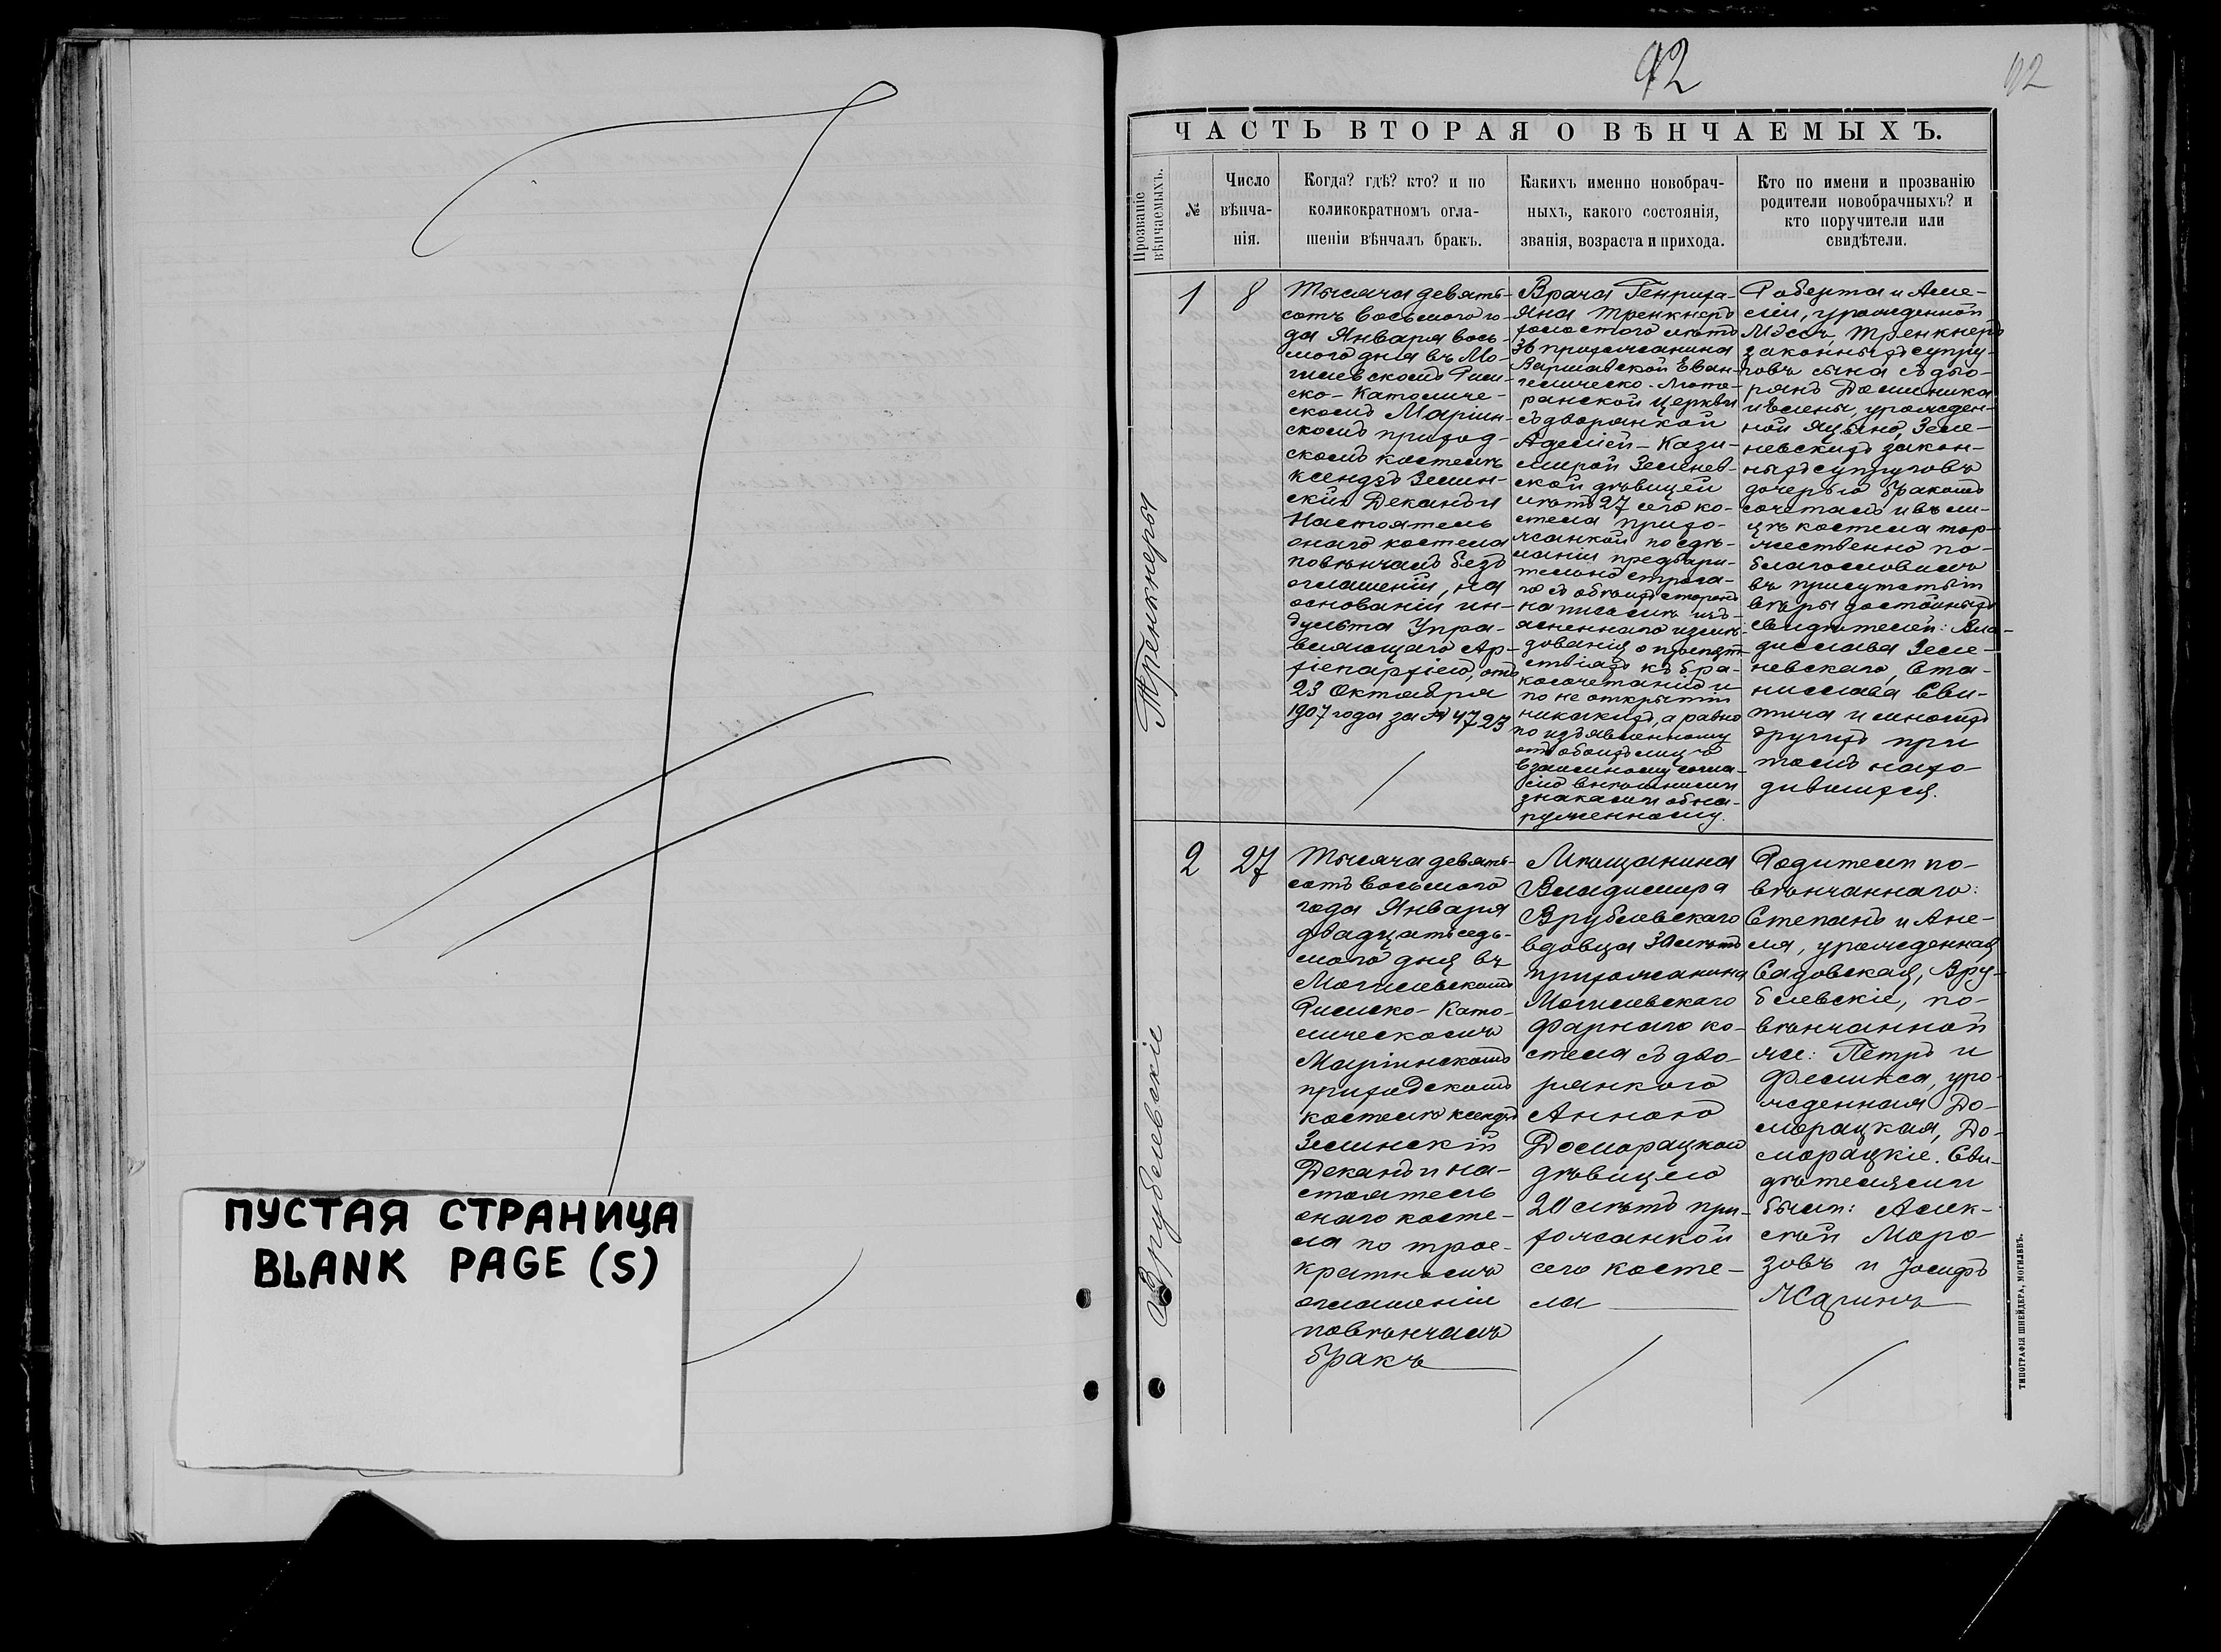 ПУСТАЯ СТРАНИЦА
BLANK PAGE (S)
92
92
ЧАСТЬ ВТОРАЯ О ВѢНЧАЕМЫХЪ.
Прозваніе
вѣнчаемыхъ.
№
Число
вѣнча-
нія.
Когда? гдѣ? кто? и по
коликократномъ огла-
шеніи вѣнчалъ бракъ.
Какихъ именно новобрач-
ныхъ, какого состоянія,
званія, возраста и прихода.
Кто по имени и прозванію
родители новобрачныхъ? и
кто поручители или
свидѣтели.
Тренкнеры
1
8
Тысяча девять-
сотъ восьмого го-
да Января вось-
мого дня въ Мо-
гилевскомъ Рим-
ско-Католиче-
скомъ Маріин-
скомъ приход-
скомъ костелѣ
ксендзъ Зелин-
скій Деканъ и
Настоятель
онаго костела
повѣнчалъ безъ
оглашеній, на
основаніи ин-
дульта Упра-
вляющаго Ар-
хіепархіею, отъ
23 Октября
1907 года за № 4723
Врача Генриха-
Яна Тренкнеръ
холостого лѣтъ
36 прихожанина
Варшавской Еван-
гелическо-Люте-
ранской церкви
съ дворянкой
Аделіей-Кази-
мирой Зеленев-
ской дѣвицей
лѣтъ 27 сего ко-
стела прихо-
жанкой по сдѣ-
ланіи предвари-
тельно строга-
го съ обѣихъ сторонъ
на письмѣ изъ-
ясненнаго изслѣ-
дованія о препят-
ствіяхъ къ бра-
косочетанію и
по не открытіи
никакихъ, а равно
по изъявленному
отъ обоихъ лицъ
взаимному согла-
сію внѣшними
знаками обна-
руженному.
Роберта и Аме-
ліи, урожденной
Мэсъ, Тренкнеръ
законныхъ супру-
говъ сына съ дво-
рянъ Доминика
и Елены, урожден-
ной Яцына, Зеле-
невскихъ закон-
ныхъ супруговъ
дочерью бракомъ
сочеталъ и въ ли-
цѣ костела тор-
жественно по-
благословилъ
въ присутствіи
вѣры достойныхъ
свидѣтелей: Вла-
дислава Зеле-
невскаго, Ста-
нислава Сви-
тича и многихъ
другихъ при
томъ нахо-
дившихся.
Врублевскіе
2
27
Тысяча девять-
сотъ восьмого
года Января
двадцать седь-
мого дня въ
Могилевскомъ
Римско-Като-
лическомъ
Маріинскомъ
приходскомъ
костелѣ ксендзъ
Зелинскій
Деканъ и На-
стоятель
онаго косте-
ла по трое-
кратномъ
оглашеніи
повѣнчалъ
бракъ
Мѣщанина
Владимира
Врублевскаго
вдовца 30 лѣтъ
прихожанина
Могилевскаго
фарнаго ко-
стела съ дво-
рянкою
Анною
Доморацкой
дѣвицею
20 лѣтъ при-
хожанкой
сего косте-
ла
Родители по-
вѣнчаннаго:
Степанъ и Ане-
ля, урожденная
Садовская, Вру-
блевскіе, по-
вѣнчанной
же: Петръ и
Феликса, уро-
жденная До-
морацкая, До-
морацкіе. Сви-
дѣтелями
были: Алек-
сѣй Моро-
зовъ и Іосифъ
Жагинъ
ТИПОГРАФІЯ ШНЕЙДЕРА, МОГИЛЕВЪ.